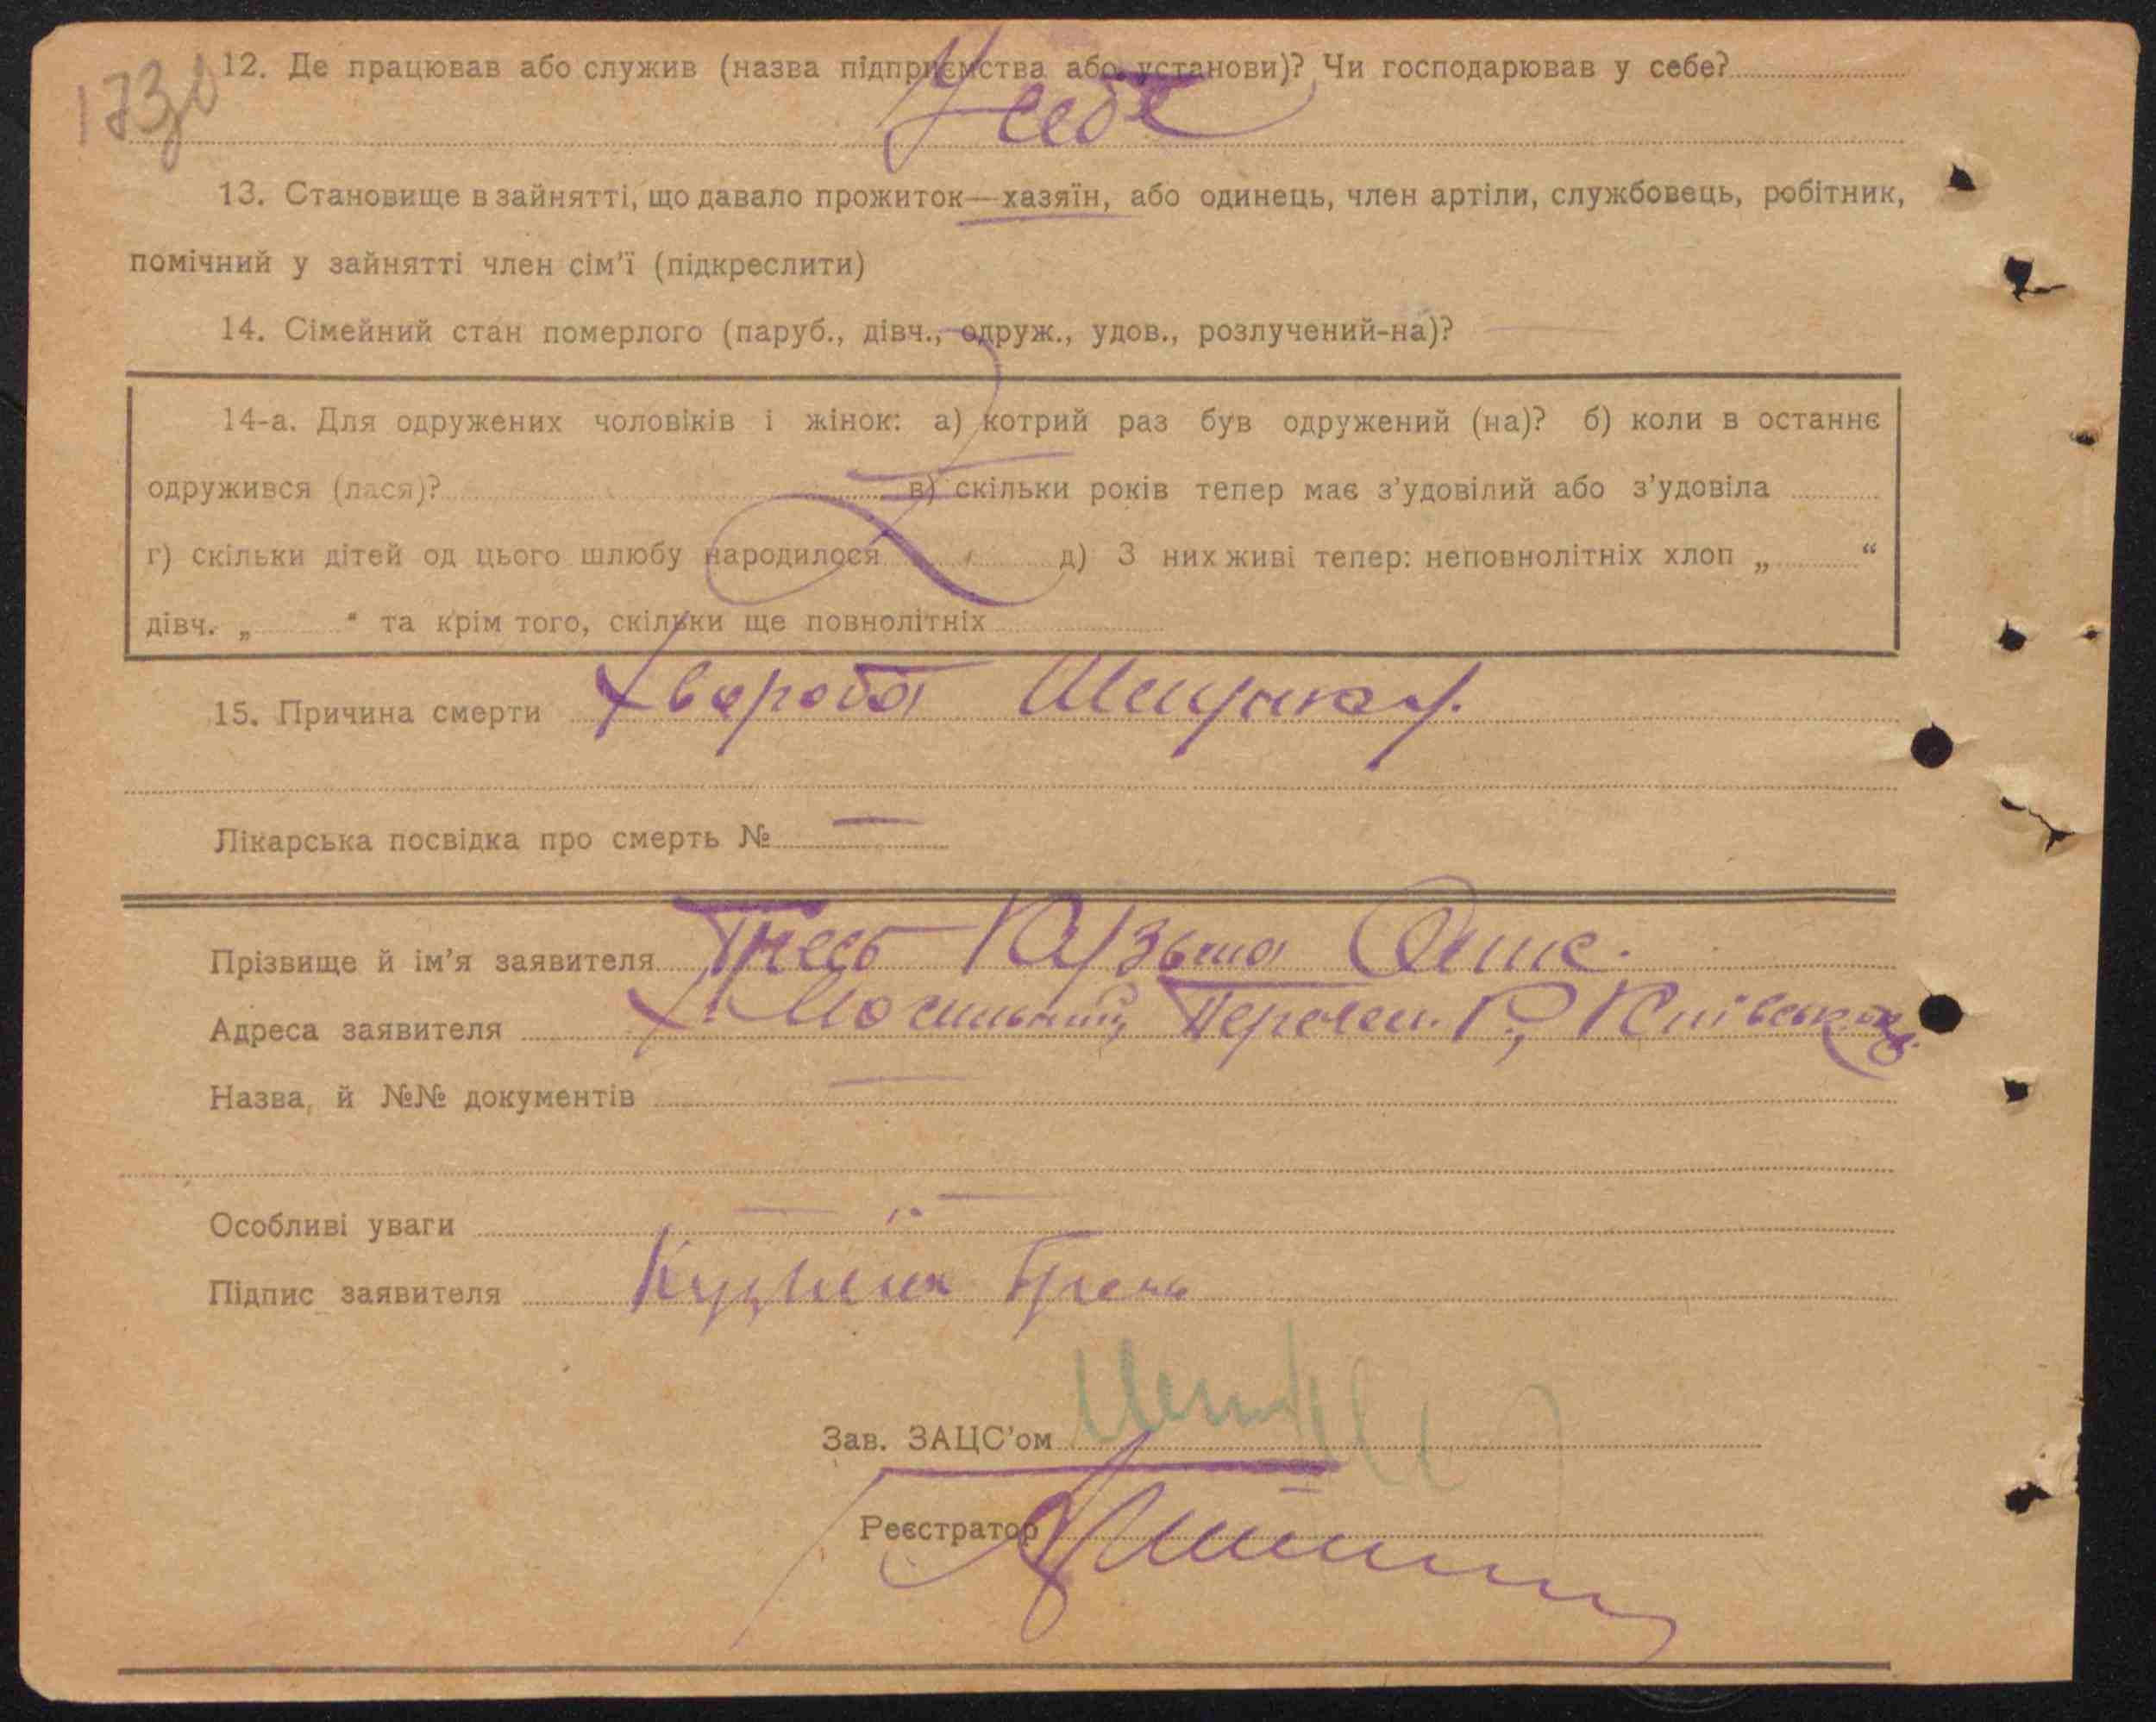 173
12. Де працював або служив (назва підприємства або установи)? Чи господарював у себе?
У себе
13. Становище в зайнятті, що давало прожиток—хазяїн, або одинець, член артіли, службовець, робітник,
помічний у зайнятті член сім'ї (підкреслити)
14. Сімейний стан померлого (паруб., дівч., одруж., удов., розлучений-на)?
14-а. Для одружених чоловіків і жінок: а) котрий раз був одружений (на)? б) коли в останнє
одружився (лася)? в) скільки років тепер має з'удовілий або з'удовіла
г) скільки дітей од цього шлюбу народилося д) З них живі тепер: неповнолітніх хлоп „ “
дівч. „ “ та крім того, скільки ще повнолітніх
15. Причина смерти Хвороба
Лікарська посвідка про смерть № —
Прізвище й ім'я заявителя Кузьма
Адреса заявителя Х. Київськ.
Назва, й №№ документів —
Особливі уваги —
Підпис заявителя
Зав. ЗАЦС'ом
Реєстратор